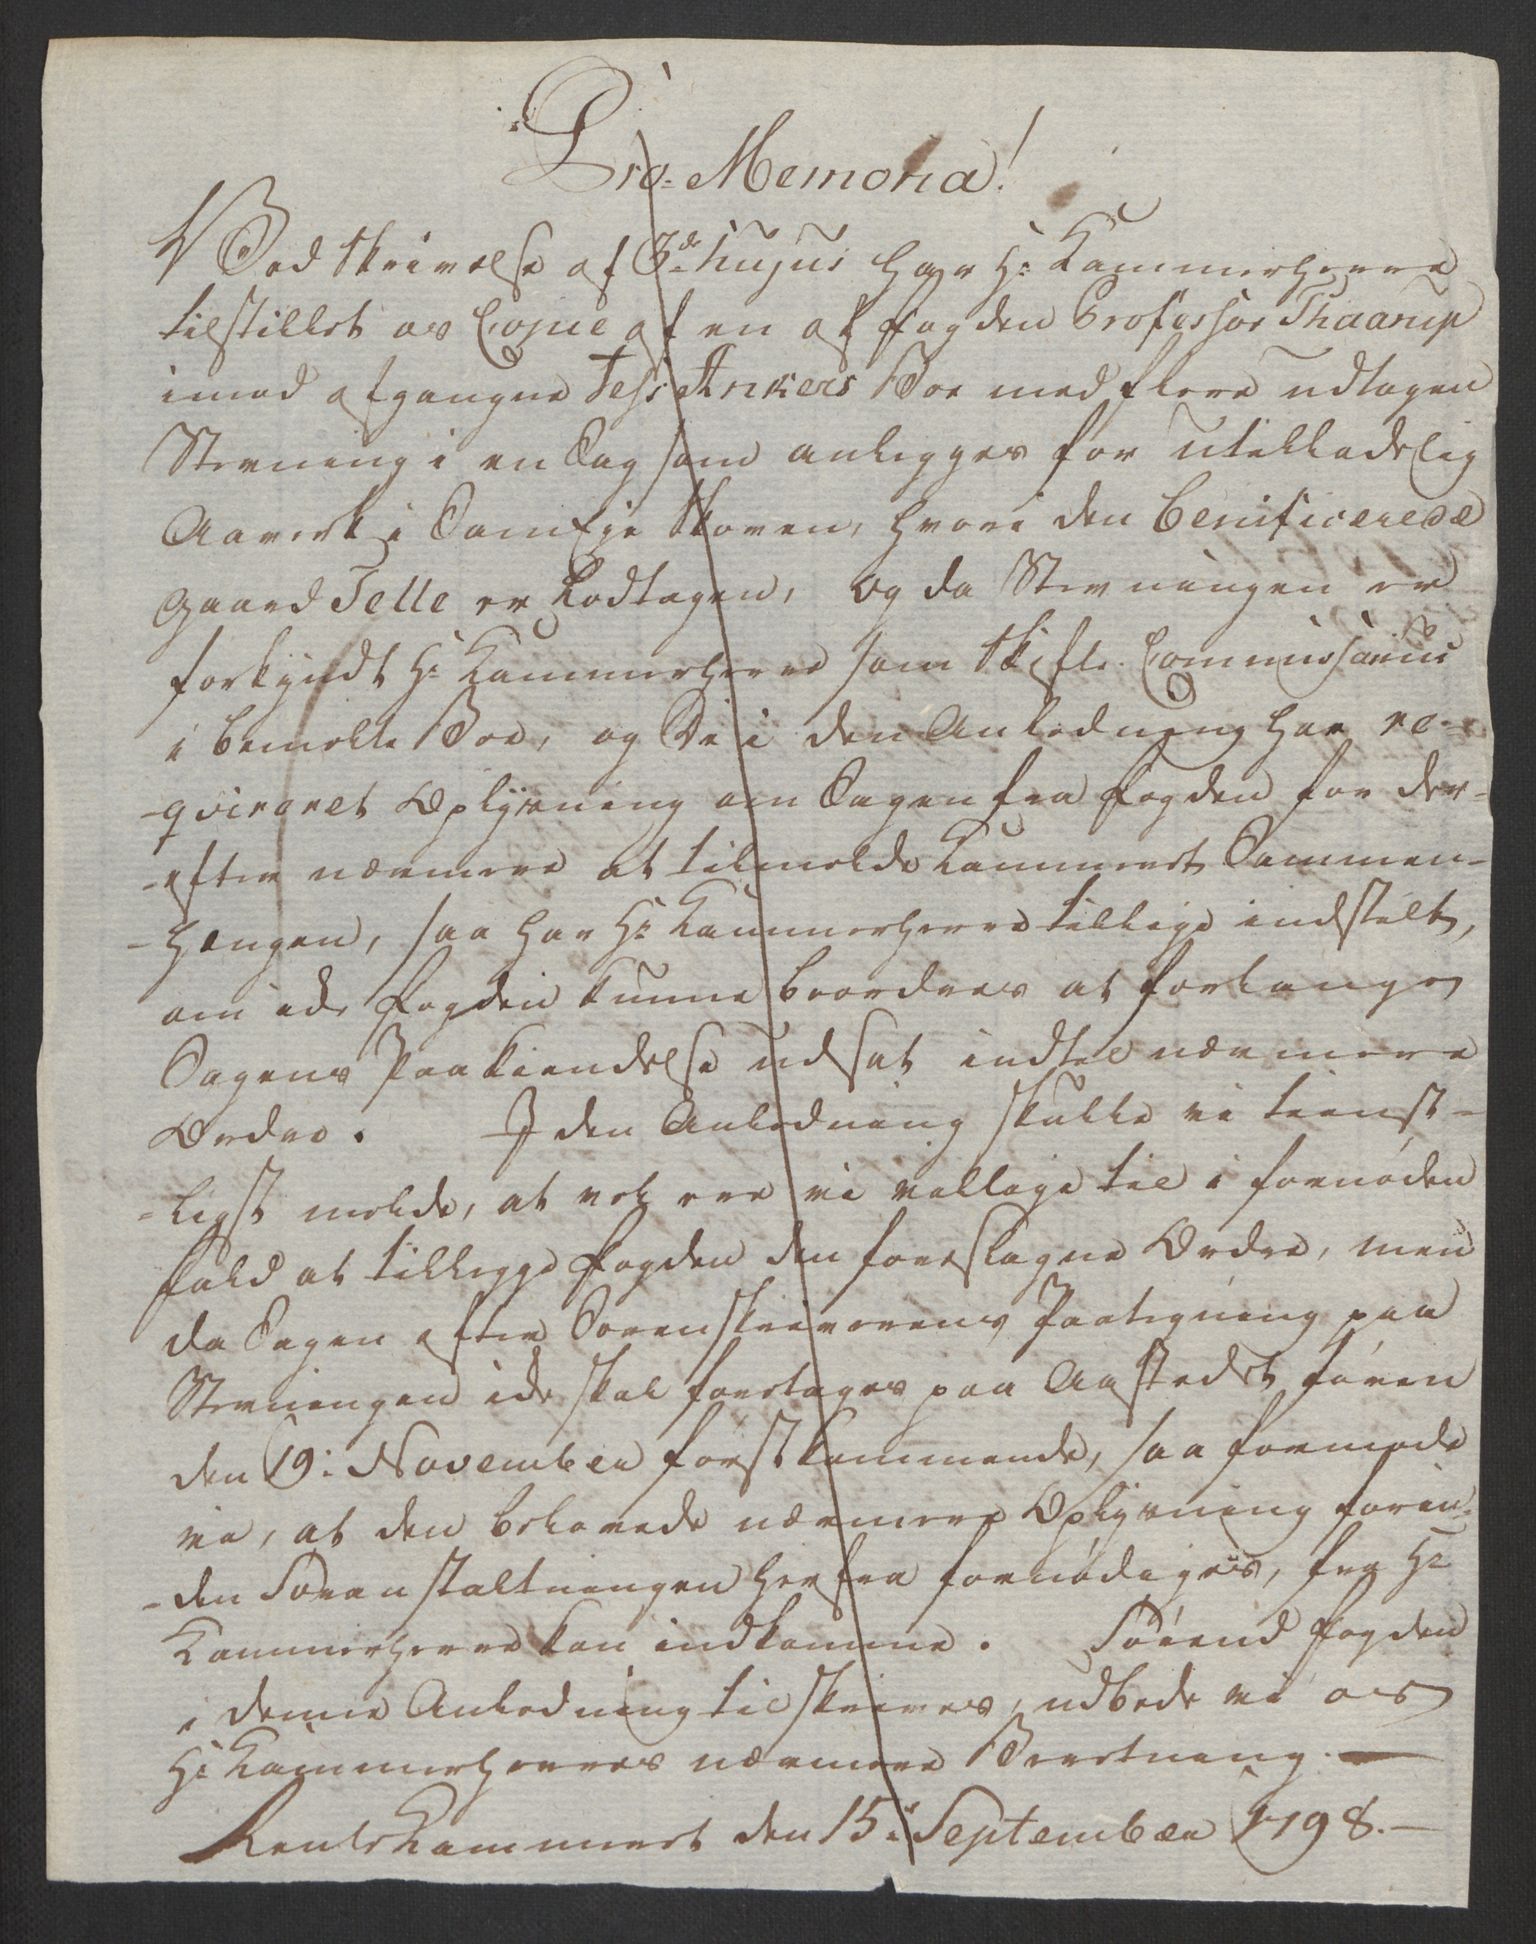 Pro-Memoria!
Ved Skrivelse af 3de hujus har Hr Kammerherre
tilstillet os Copie af en af Fogden Professor Thaarup
imod afgangne Jess Ankers Boe med flere udtagen
Stevning i en Sag som anlægges for utilladelig
Aavirk i SamEje Skoven, hvori den Benificerede
Gaard Telle er Lodtagen, og da Stevningen er
forkyndt Hr Kammerherre som Skifte Commissarius
i bemelte Boe, og De i den Anledning har re-
-qvireret Oplysning om Sagen fra Fogden for der-
-efter nærmere at tilmelde Kammeret Sammen-
-hængen, saa har Hr Kammerherre tillige indstilt,
om ick Fogden kunne beordres at forlange
Sagens Paakiendelse udsat indtil nærmere
Ordre. I den Anledning skulle vi tienst-
-ligst melde, at vel ere vi villige til i fornøden
Fald at tillegge Fogden den foreslagne Ordre, men
da Sagen efter Sorenskriverens Paategning paa
Stevningen ick skal foretages paa Aastedet føren
den 19: November førstkommende, saa formode
vi, at den behøvede nærmere Oplysning forin-
-den Foranstaltningen herfra fornødiges, fra Hr
Kammerherre kan indkomme. Førend Fogden
i denne Anledning tilskrives, udbede vi os
Hr Kammerherres nærmere Beretning.
RenteKammeret den 15de September 1798.